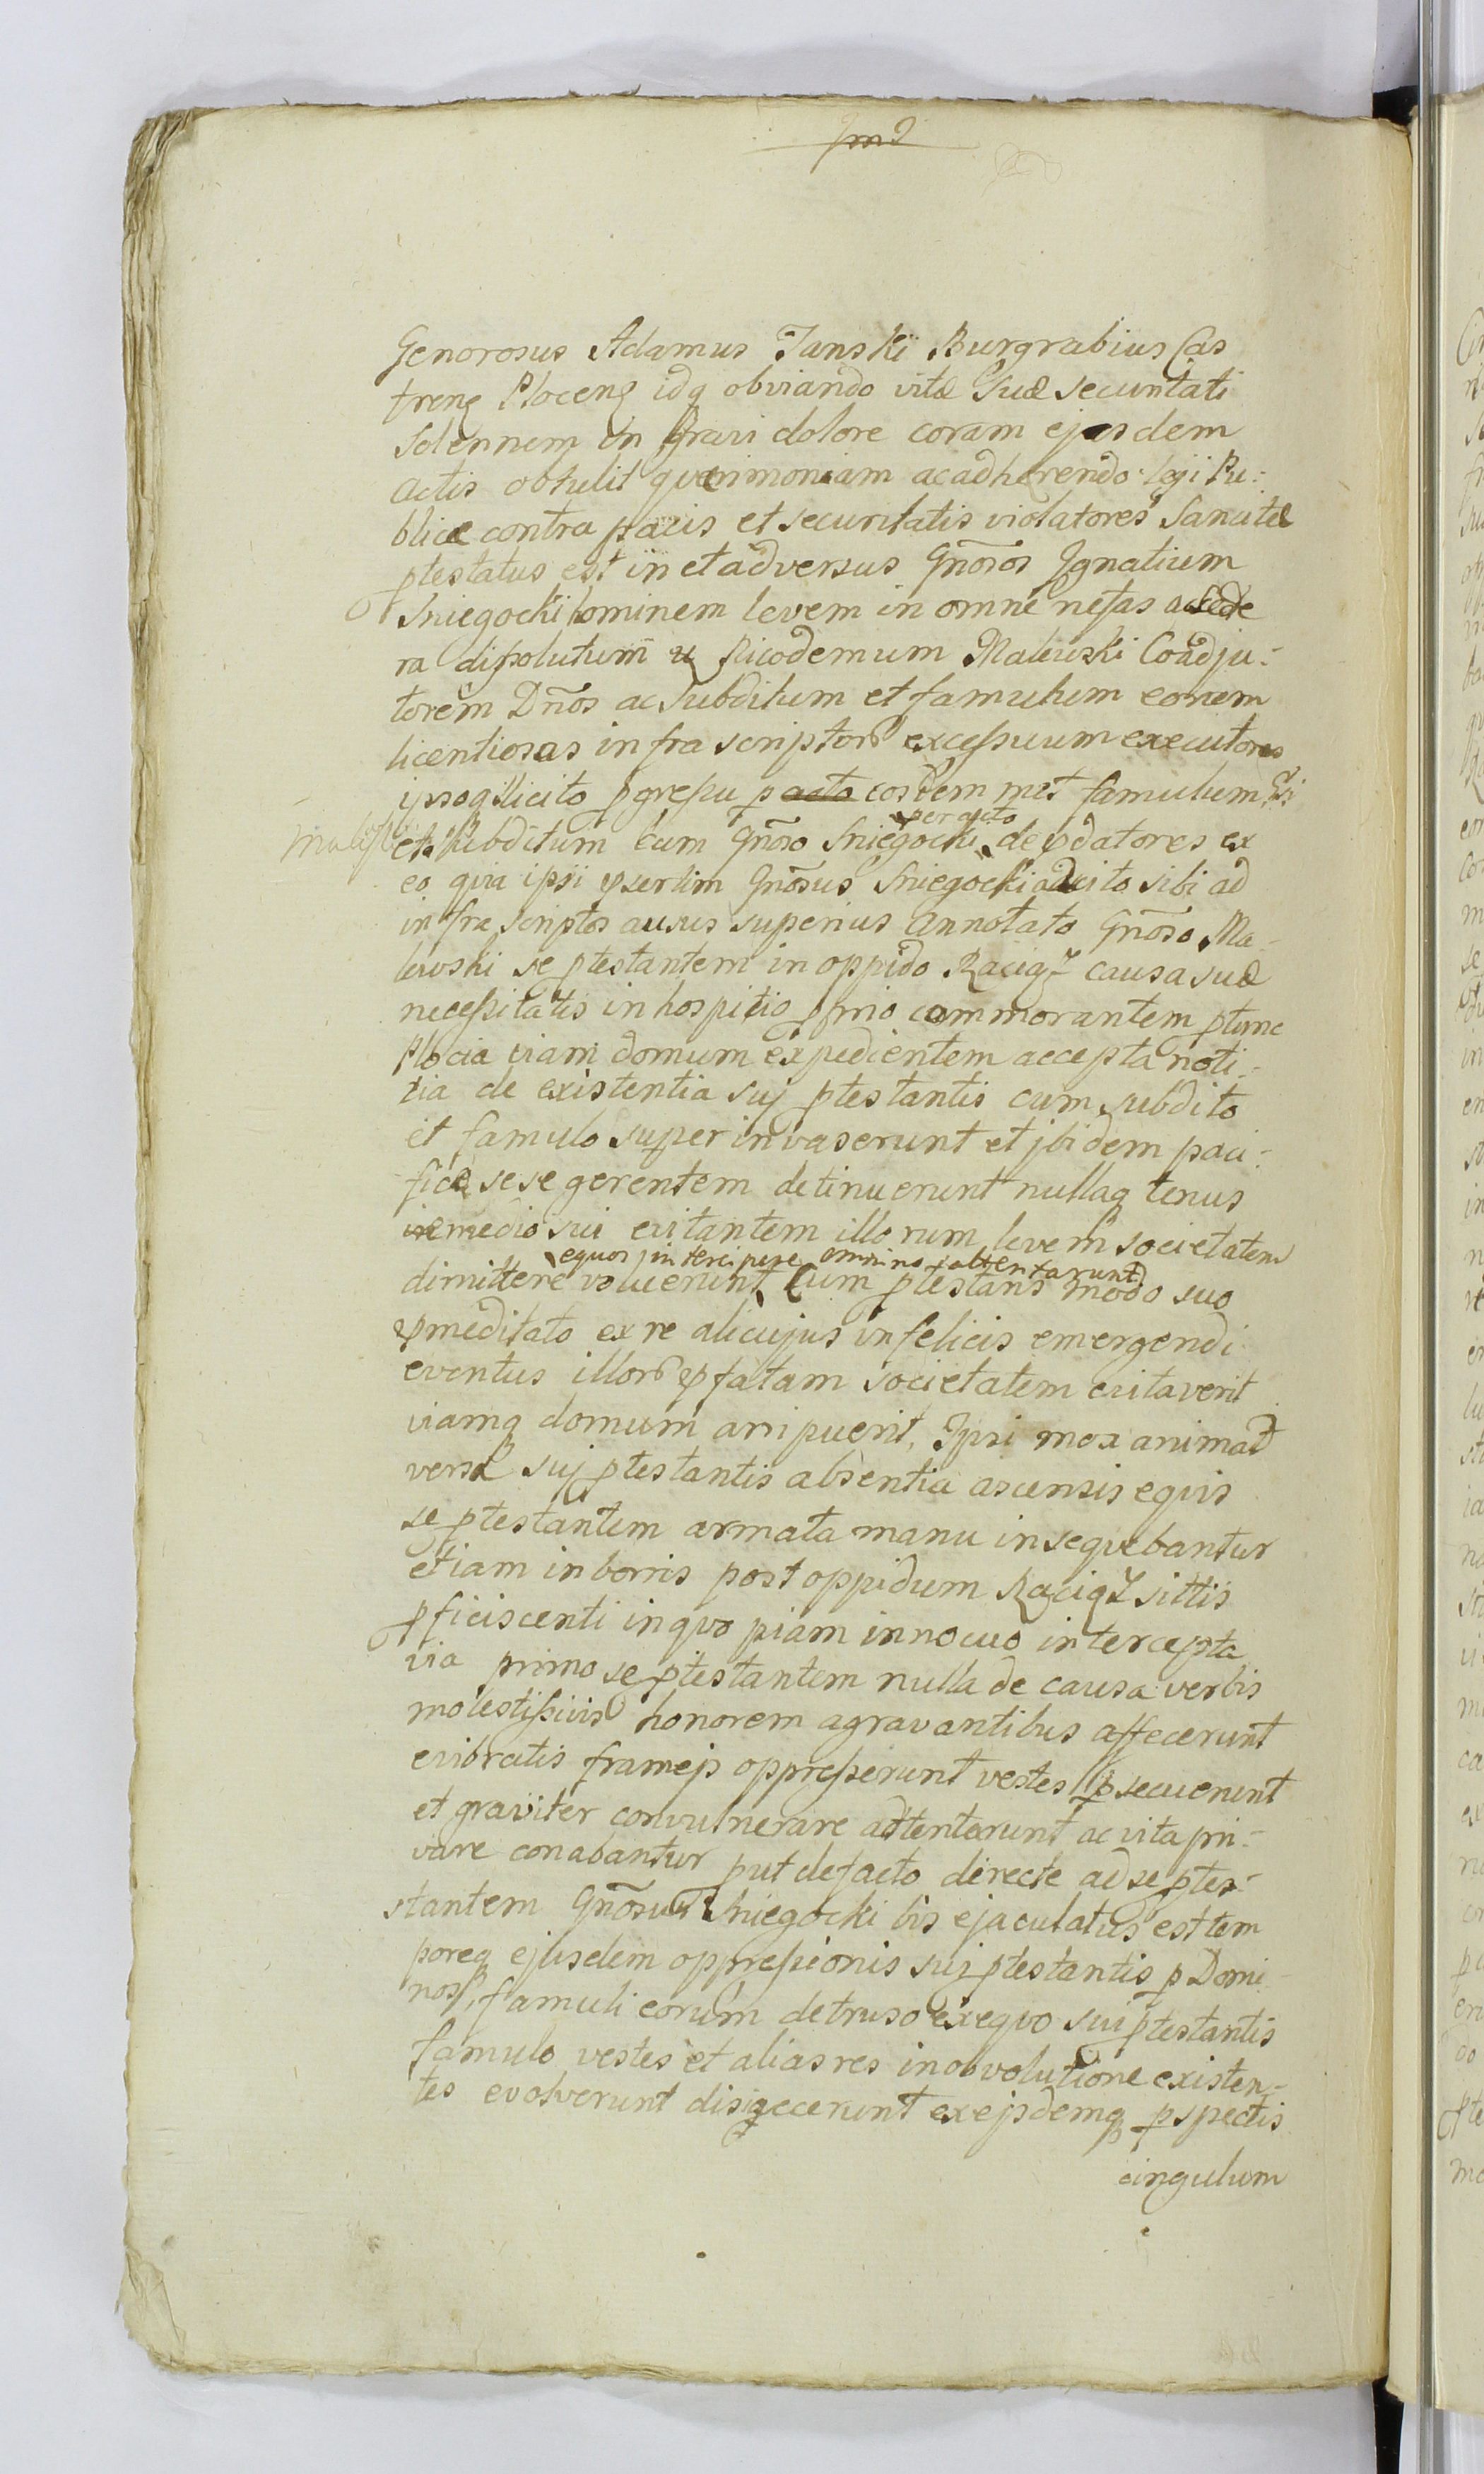 Generosus Adamus Janski Burgrabius Cas
treng Ploceng idq obviando vitæ suæ securitati
solennem in gravi dolore coram ejusdem
actis obtulit querimoniam ac adhærendo legi Pu-
blicæ contra pacis et securitatis violatores sancitæ
ptestatus est in et adversus Gnosos Ignatium
Sniegocki hominem levem in omne nefas ac scele
ra dissolutum et Nicodemum Malewski Coadju-
torem Dnos ac subditum et famulum eorum
licentiosas infra scriptor excessuum executores
ipsoq illicito pgressu p acto eosdem met famulum
et subditum cum Gnoso Sniegocki peracto depdatores ex
eo quia ipsi psertim Gnosus Sniegocki adscito sibi ad
infra scriptos ausus superius annotato Gnoso Ma-
lewski se ptestantem in oppido Raciąz causa suæ
necessitatis in hospitio pprio commorantem ptunc
Plocia viam domum expedientem accepta noti-
tia de existentia suj ptestantis cum subdito
et famulo super invaserunt et jbidem paci-
fice sese gerentem detinuerunt nullaq tenus
e medio sui evitantem illorum levem societatem
equos intercipere omnino attentarunt
dimittere voluerunt Cum ptestans modo suo
pmeditato ex re alicujus infelicis emergendi
eventus illor pfatam societatem evitaverit
viamq domum arripuerit, Ipsi mox animad
versa suj ptestantis absentia ascensis equis
se ptestantem armata manu insequebantur
etiam in borris post oppidum Raciąz sittis
pficiscenti in quo piam innocuo intercepta
via primo se ptestantem nulla de causa verbis
molestissivis honorem agravantibus affecerunt
evibratis framejs oppresserunt vestes psecuerunt
et graviter convulnerare adtentarunt ac vita pri-
vare conabantur put de facto directe ad se ptes-
stantem Gnosus Sniegocki bis ejaculatus est tem
poreq ejusdem oppressionis suj ptestantis p Domi-
nos, famuli eorum detruso ex equo sui ptestantis
famulo vestes et alias res in obvolutione existen-
tes evolverunt disjecerunt ex ejsdemq pspectis
cingulum